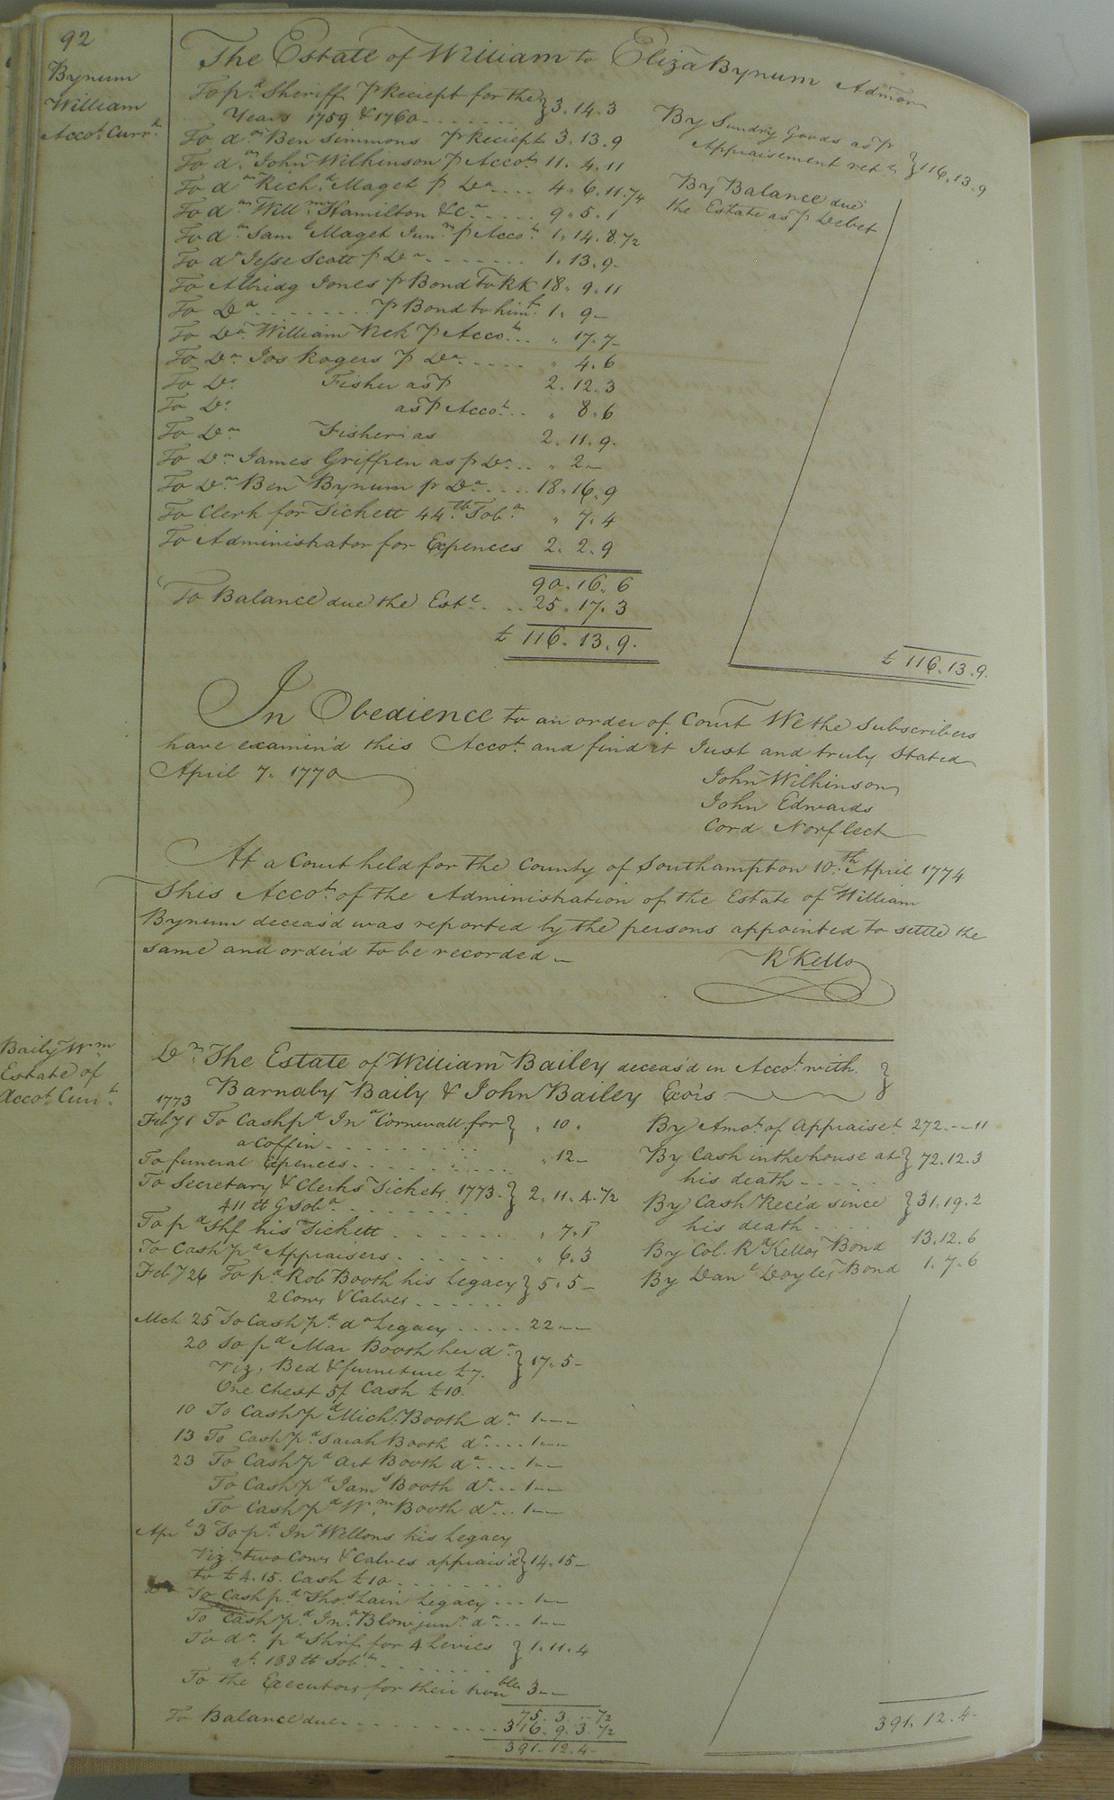 92
Bynum
William
Accot. Currt.
The Estate of William to Eliza Bynum Admon
To pd. Sheriff p Reciept for the } 3.14.3
Years 1759 & 1760
To do. Ben Simmons p Reciept 3.13.9
To do. John Wilkinson p Accot. 11.4.11
To do. Richd. Maget p Do. 4.6.11.1/4
To do. Willm. Hamilton &Ca. 9.5.1
To do. Saml. Maget Junr. p Accot. 1.14.8.1/2
To do. Jesse Scott p Do. 1.13.9
To Albridg Jones p Bond To RK 18.9.11
To Do. p Bond to himf. 1.9–
To Do. William Vick p Accot. " 17.7–
To Do. Jos Rogers p Do. " 4.6
To Do. Fisher as p 2.12.3
To Do. as p Accot. " 8.6
To Do. Fisher as 2.11.9
To Do. James Griffren as p Do. " 2–
To Do. Ben Bynum p Do. 18.16.9
To Clerk for Tickett 44 lb Tobo. " 7.4
To Administrator for Expences 2.2.9
90.16.6
To Balance due the Este. 25.17.3
£ 116.13.9.
By Sundry Goods as p
Appraisement ret } 116.13.9
By Balance due
the Estate as p Debet
£ 116.13.9.
In Obedience to an order of Court We the Subscribers
have examin'd this Accot. and find it Just and truly Stated
April 7. 1770
John Wilkinson
John Edwards
Cord Norfleet
At a Court held for the County of Southampton 10th. April 1774
This Accot. of the Administration of the Estate of William
Bynum deceas'd was reported by the persons appointed to settle the
same and order'd to be recorded –
R Kello
Baily Wm.
Estate of
Accot. Currt.
Dr. The Estate of William Bailey deceas'd in Accot. with }
Barnaby Baily & John Bailey Exo'rs
1773
Feby 1 To Cash pd. Jno. Cornwall for } " 10 "
a Coffin
To funeral Expences " 12–
To Secretary & Clerks Tickets 1773. } 2.11.4.1/2
411 lb G Tobo.
To pd. Shf. his Tickett " 7.
To Cash pd. Appraisers " 6.3
Feb 26 To pd. Rob Booth his Legacy } 5.5–
2 Cows & Calves
Mch 25 To Cash pd. do Legacy 22––
20 To pd. Mar Booth her do. } 17.5–
Viz. Bed & furniture £7.
One Chest 5/ Cash £10.
10 To Cash pd. Mich. Booth do. 1––
13 To Cash pd. Sarah Booth do. 1––
23 To Cash pd. Art Booth do. 1––
To Cash pd. Jams. Booth do. 1––
To Cash pd. Wm. Booth do. 1––
Aprl. 3 To pd. Jno. Wellons his Legacy
Viz. two Cows & Calves apprais'd } 14.15–
to £4.15. Cash £10
To Cash pd. Thos. Lain Legacy 1––
To Cash pd. Jno. Blow junr. do. 1––
To do. pd. Shrif. for 4 Levies } 1.11.4
at 188 lb Tobo.
To the Executors for their troubles 3––
75.3.–1/2
To Balance due 316.9.3.1/2
391.12.4–
By Amot. of Appraiset. 272.––11
By Cash in the house at } 72.12.3
his death
By Cash Rece'd since } 31.19.2
his death
By Col. R. Kellos Bond 13.12.6
By Danl. Doyles Bond 1.7.6
391.12.4.